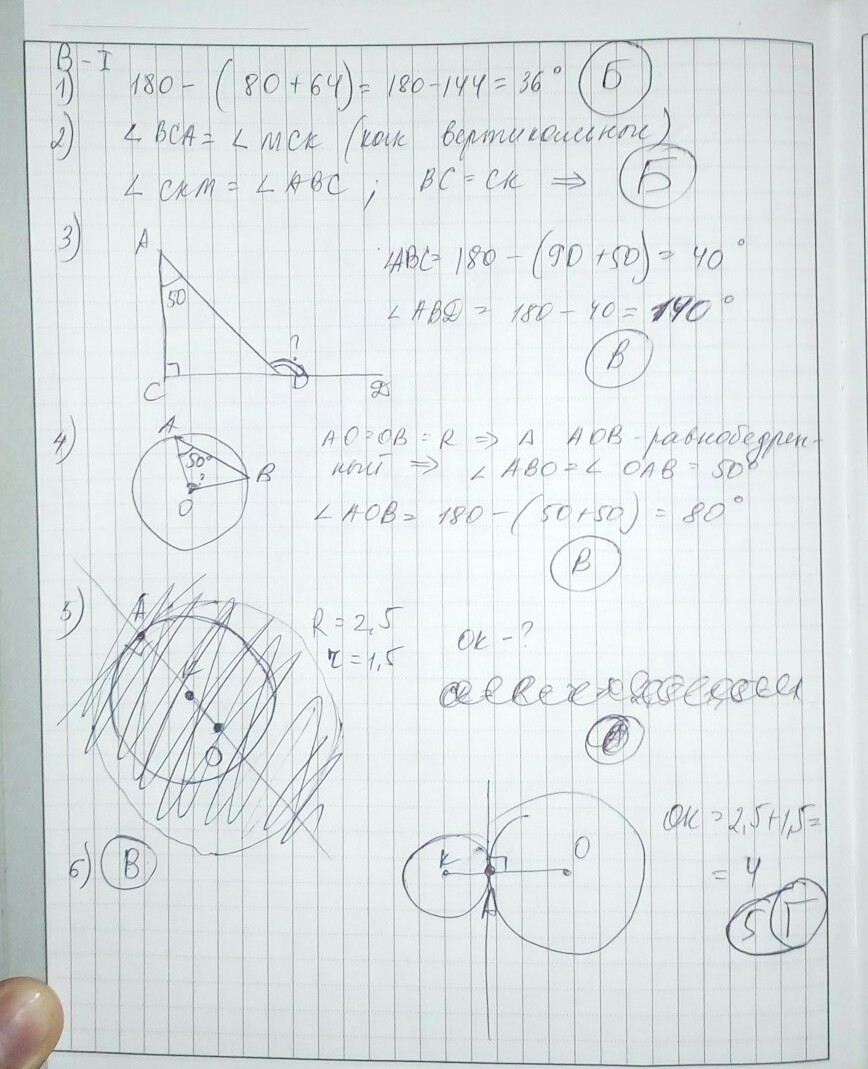 В-I
1) 180 - (80+64) = 180-144 = 36° Б
2) ∠ BCA = ∠ MCK (как вертикальные)
∠ CKM = ∠ ABC ; BC = CK ⇒ Б
3) A
50
?
C B D
∠ABC = 180 - (90+50) = 40°
∠ABD = 180 - 40 = 140°
В
4) A
50°
?
B
O
AO=OB=R ⇒ Δ AOB - равнобедрен-
ный ⇒ ∠ ABO = ∠ OAB = 50°
∠AOB = 180 - (50+50) = 80°
В
5) A
K
O
R = 2,5
r = 1,5
OK - ?
K O
A
OK = 2,5+1,5=
= 4
Г
6) В